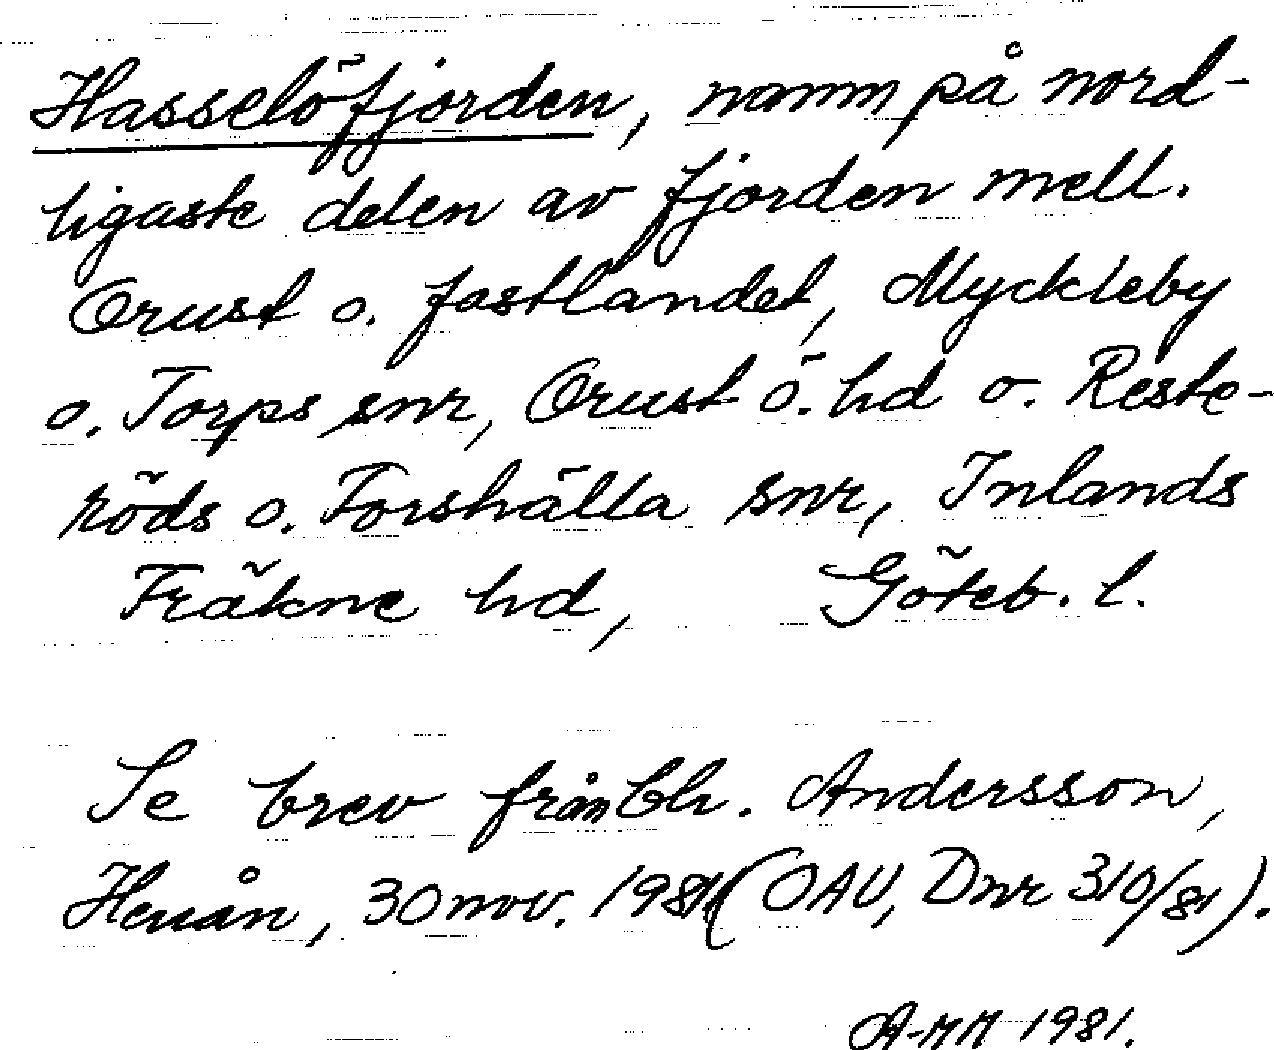 Hasselöfjorden, namn på nord-
ligaste delen av fjorden mell.
Orust o. fastlandet, Myckleby
o. Torps snr, Orust ö. hd o. Reste-
röds o. Forshälla snr, Inlands
Fräkne hd, Göteb. l.
Se brev från Ch. Andersson,
Henån, 30 nov. 1981 (OAU, Dnr 310/81).
1981.